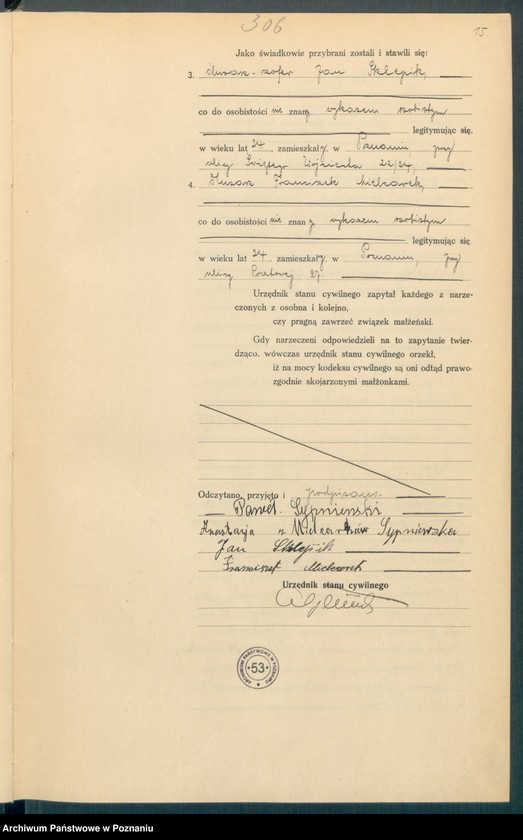 306
15
Jako świadkowie przybrani zostali i stawili się:
3. ślusarz-szofer Jan Sklepik,
co do osobistości nie znany wykazem osobistym
legitymując się,
w wieku lat 24, zamieszkały w Poznaniu, przy
ulicy Świętego Wojciecha 22/24,
4. ślusarz Franciszek Michzarek,
co do osobistości nie znany wykazem osobistym
legitymując się
w wieku lat 24, zamieszkały w Poznaniu, przy
ulicy 27
Urzędnik stanu cywilnego zapytał każdego z narze-
czonych z osobna i kolejno,
czy pragną zawrzeć związek małżeński.
Gdy narzeczeni odpowiedzieli na to zapytanie twier-
dząco, wówczas urzędnik stanu cywilnego orzekł,
iż na mocy kodeksu cywilnego są oni odtąd prawo-
zgodnie skojarzonymi małżonkami.
Odczytano, przyjęto i podpisano.
Paweł Sypniewski
Anastazja z Sypniewska
Jan Sklepik
Franciszek
Urzędnik stanu cywilnego
ARCHIWUM PAŃSTWOWE W POZNANIU
53
Archiwum Państwowe w Poznaniu